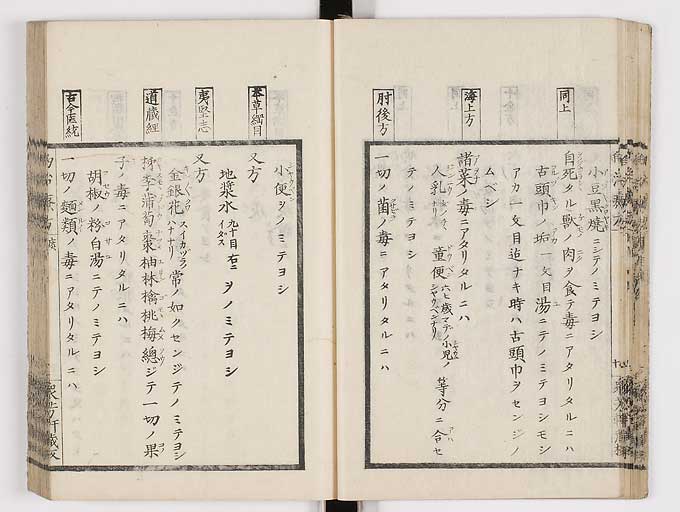 小豆黒焼ニシテノミテヨシ
同上
自死タル獣ノ肉ヲ食テ毒ニアタリタルニハ
古頭巾ノ垢一文目湯ニテノミテヨシモシ
アカ一文目迄ナキ時ハ古頭巾ヲセンジノ
ムベシ
海上方
諸菜ノ毒ニアタリタルニハ
人乳 童便 六七歳マデノ小児ノシヤウベンナリ 等分ニ合セ
テノミテヨシ
肘後方
一切ノ菌ノ毒ニアタリタルニハ
小便ヲノミテヨシ
本草綱目
又方
地漿水 九十目右ニイダス ヲノミテヨシ
夷堅志
又方
金銀花 スイカヅラノハナナリ 常ノ如クセンジテノミテヨシ
道蔵経
李葡萄棗柚林檎桃梅總ジテ一切ノ果
子ノ毒ニアタリタルニハ
胡椒ノ粉白湯ニテノミテヨシ
古今医統
一切ノ麺類ノ毒ニアタリタルニハ